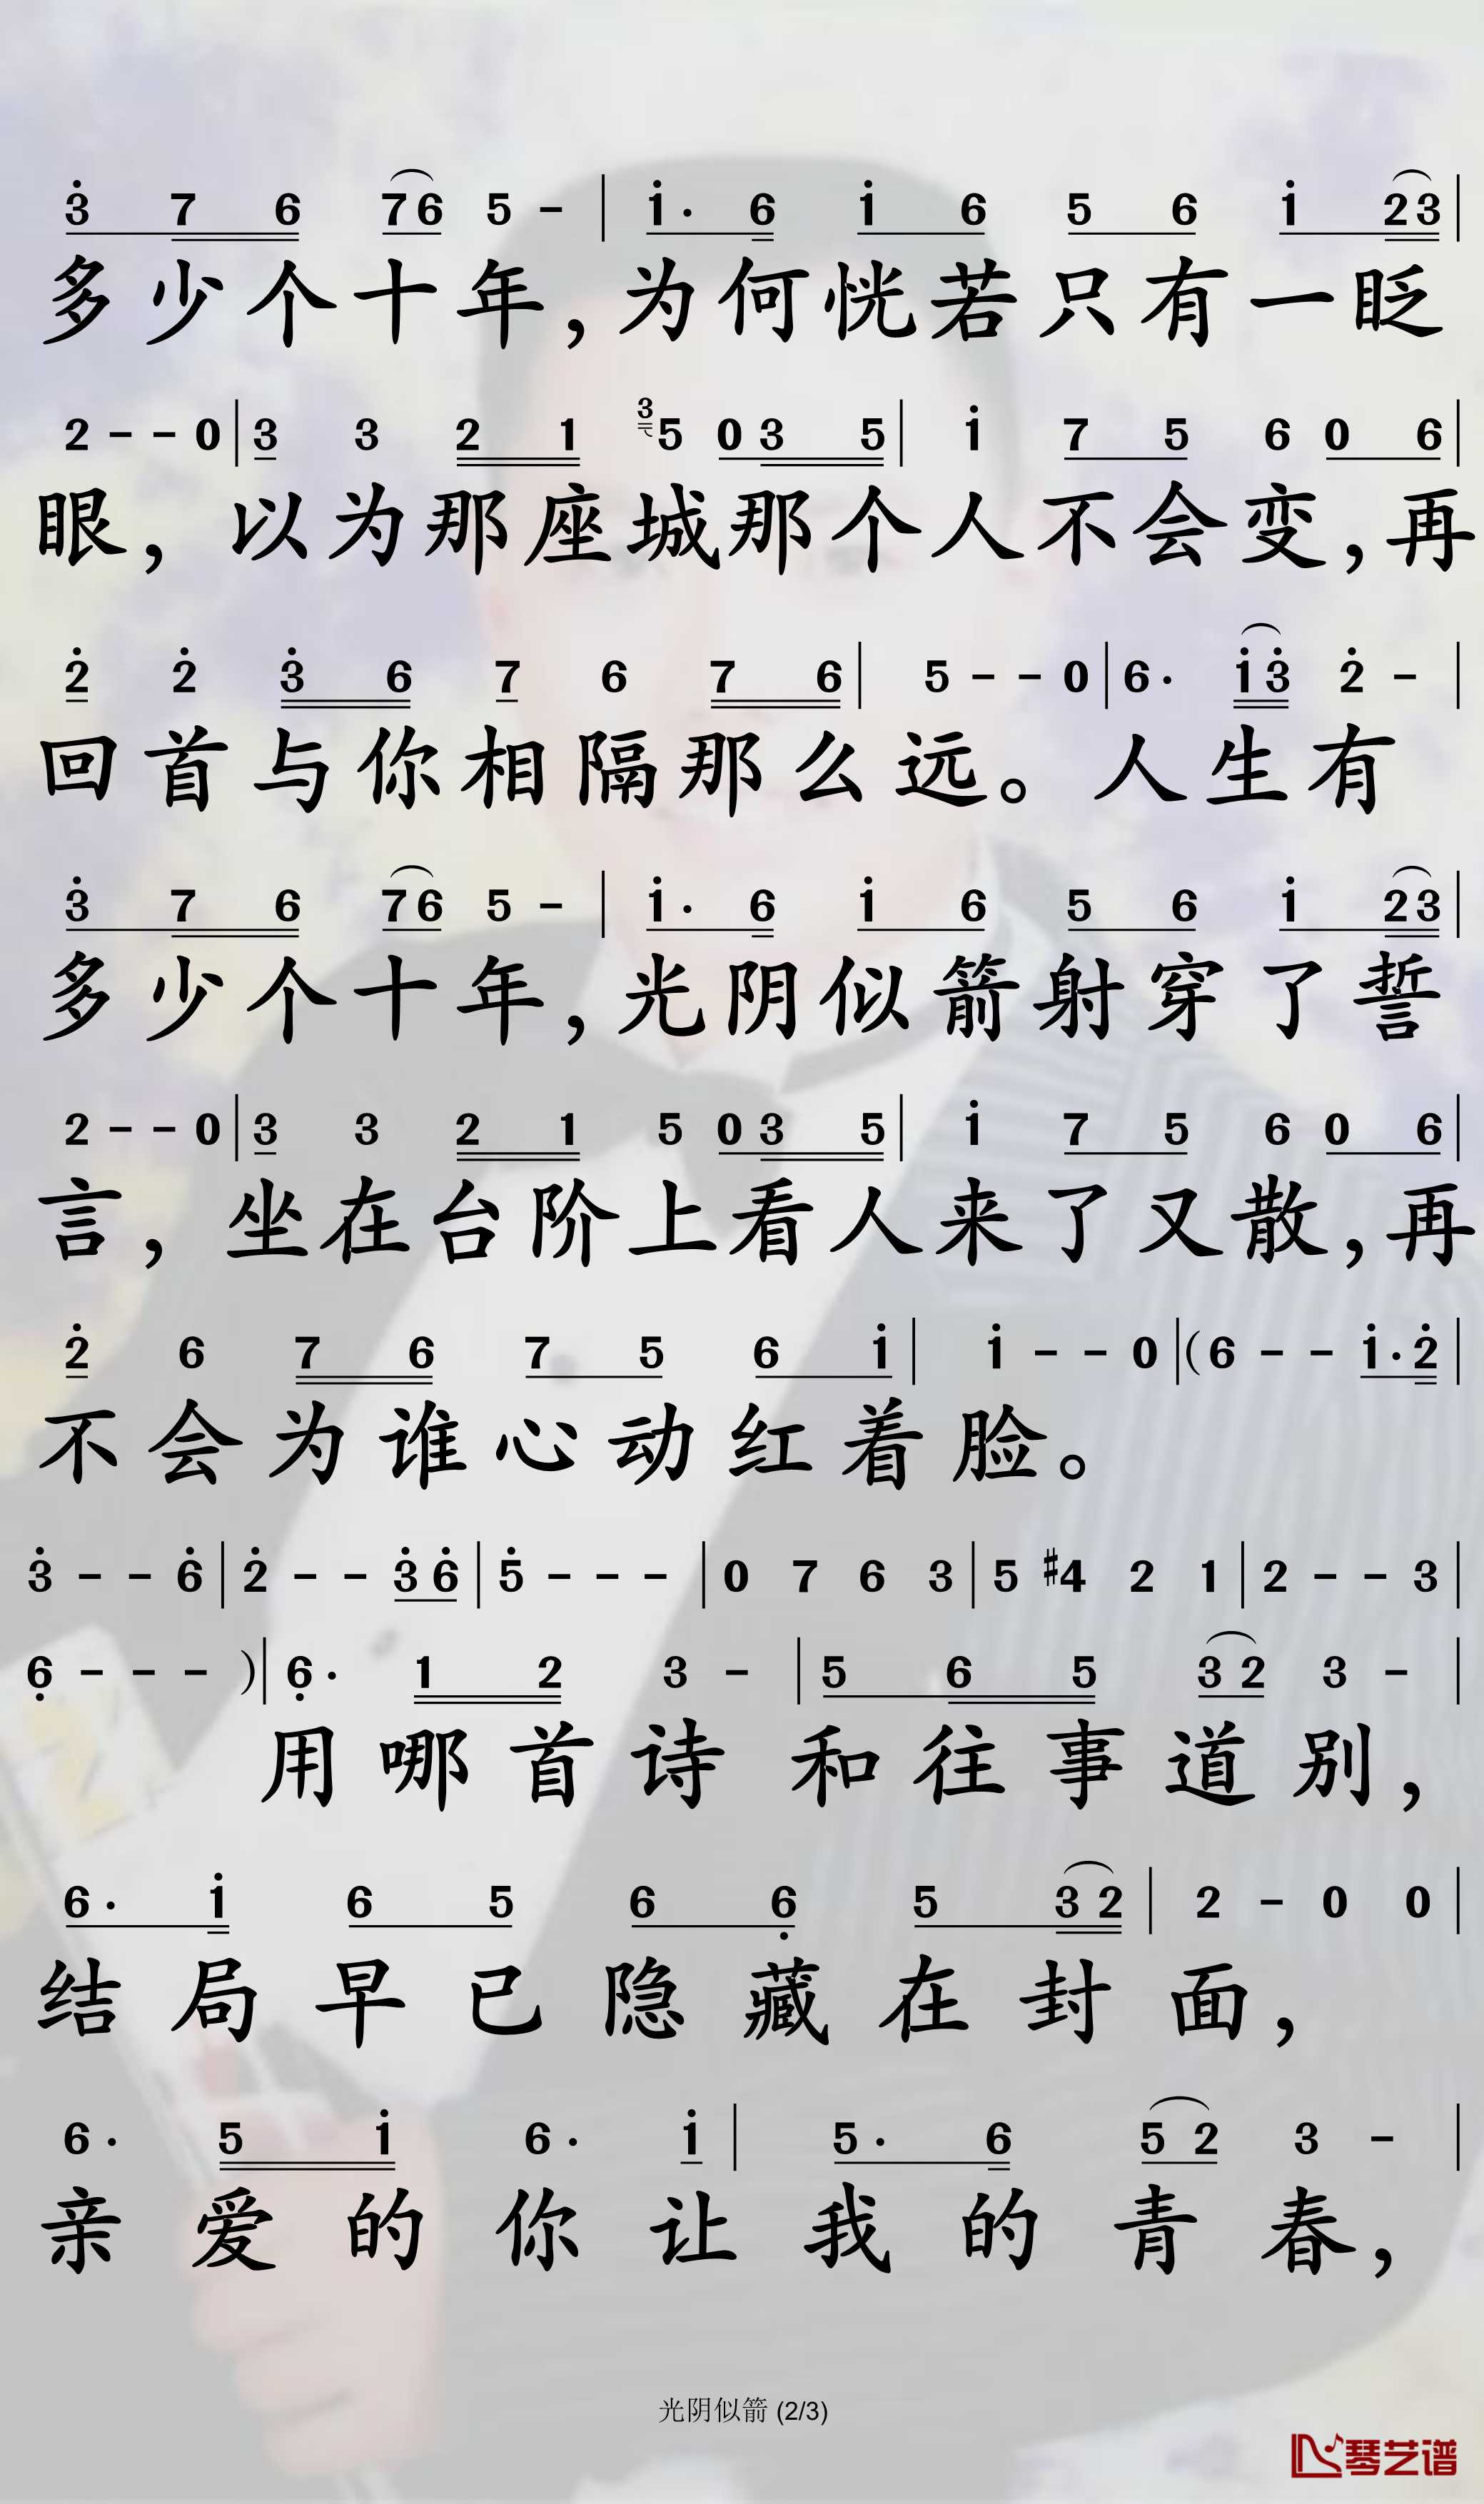 3̇ 7 6 7 6 5 – | 1̇ · 6 1̇ 6 5 6 1̇ 2 3 |
多少个十年，为何恍若只有一眨
2 – – 0 | 3 3 2 1 3 5 0 3 5 | 1̇ 7 5 6 0 6 |
眼，以为那座城那个人不会变，再
2̇ 2̇ 3̇ 6 7 6 7 6 | 5 – – 0 | 6 · 1̇ 3̇ 2̇ – |
回首与你相隔那么远。人生有
3̇ 7 6 7 6 5 – | 1̇ · 6 1̇ 6 5 6 1̇ 2 3 |
多少个十年，光阴似箭射穿了誓
2 – – 0 | 3 3 2 1 5 0 3 5 | 1̇ 7 5 6 0 6 |
言，坐在台阶上看人来了又散，再
2̇ 6 7 6 7 5 6 1̇ | 1̇ – – 0 | ( 6 – – 1̇ · 2̇ |
不会为谁心动红着脸。
3̇ – – 6̇ | 2̇ – – 3̇ 6̇ | 5̇ – – – | 0 7 6 3 | 5 #4 2 1 | 2 – – 3 |
6̣ – – – ) | 6̣ · 1 2 3 – | 5 6 5 3 2 3 – |
用哪首诗和往事道别，
6 · 1̇ 6 5 6 6̣ 5 3 2 | 2 – 0 0 |
结局早已隐藏在封面，
6 · 5 1̇ 6 · 1̇ | 5 · 6 5 2 3 – |
亲爱的你让我的青春，
光阴似箭 (2/3)
琴艺谱